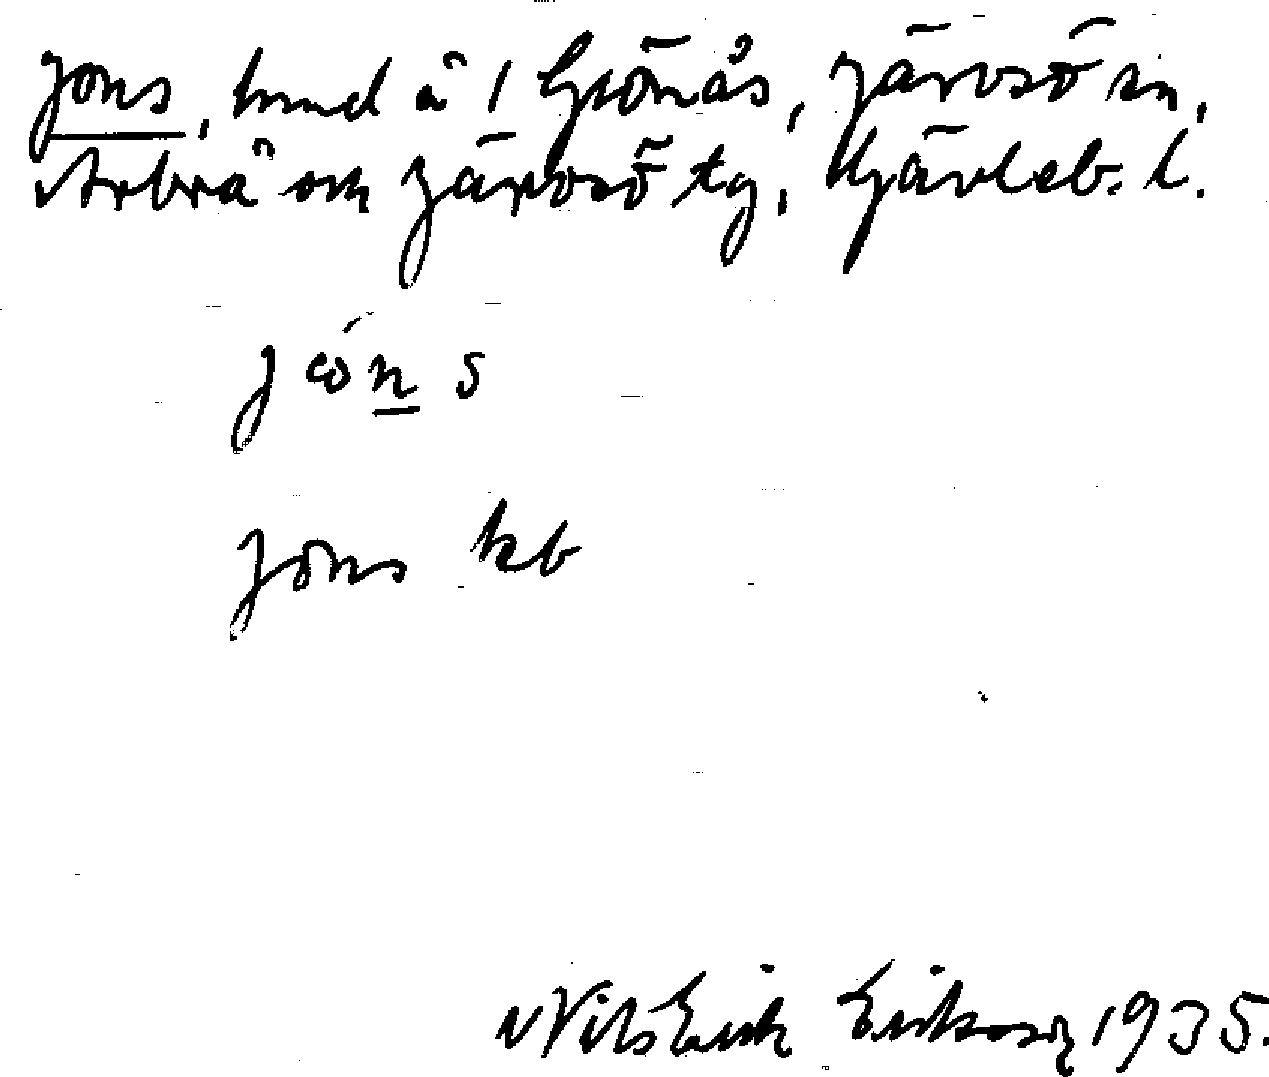 Jons, hmd å 1 Grönås, Järvsö sn,
Arbrå och Järvsö tg, Gävleb. l.
jón s
Jons kb
Nils Erik Eriksson 1935.